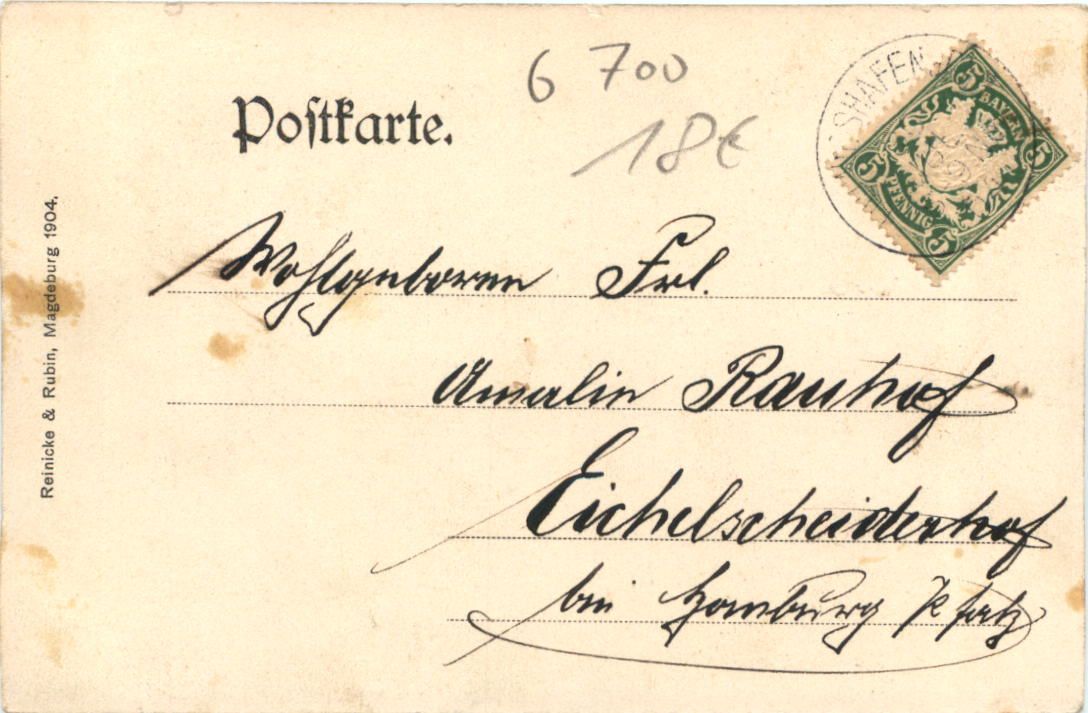 6 700
18€
Postkarte.
SHAFEN
5
BAYERN
5
5
PFENNIG
5
Wohlgeboren Frl.
Amalie Rauhof
Eichelscheiderhof
bei Homburg Pfalz
Reinicke & Rubin, Magdeburg 1904.